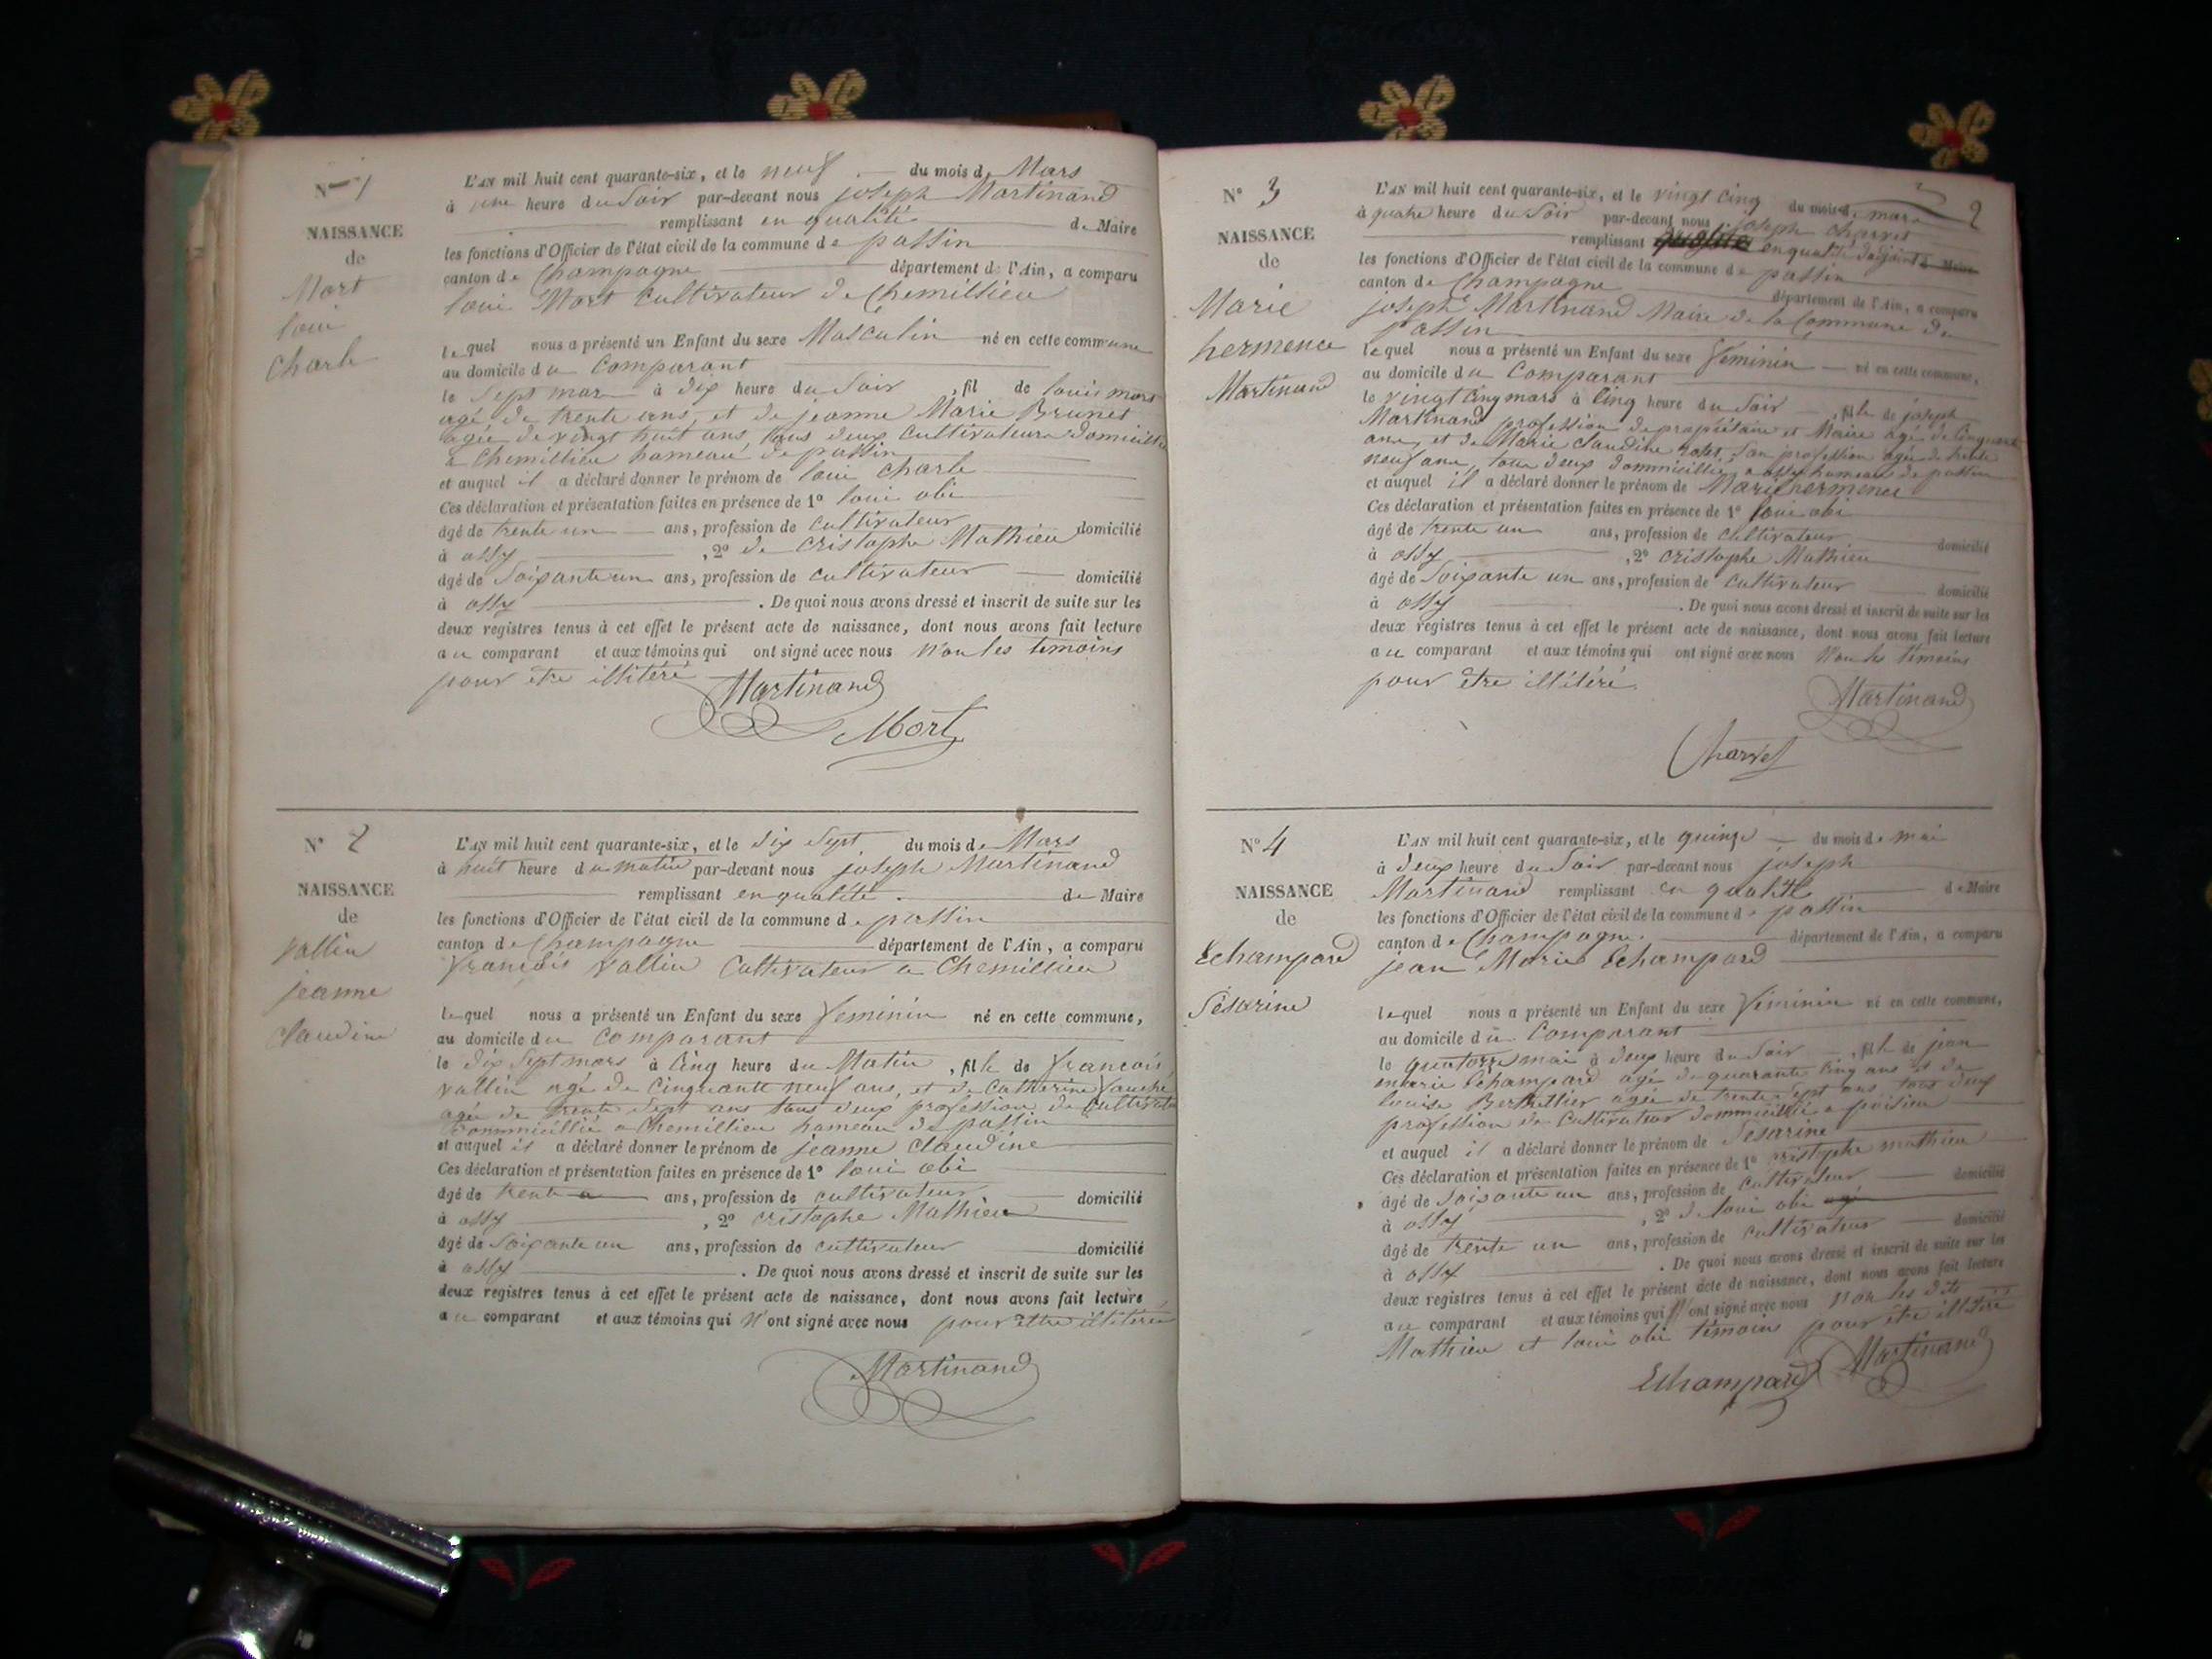 N° 1
NAISSANCE
de
Mort
loui
Charle
L'AN mil huit cent quarante-six, et le neuf du mois de Mars
à une heure du Soir par-devant nous joseph Martinand
remplissant en qualité de Maire
les fonctions d'Officier de l'état civil de la commune de passin
canton de Champagne département de l'Ain, a comparu
loui Mort Cultivateur de Chemillieu
lequel nous a présenté un Enfant du sexe Masculin né en cette commune
au domicile du Comparant
le Sept mars à dix heure du Soir, fil de louis mort
agé de trente ans, et de jeanne Marie Brunet
agée de vingt huit ans, tous deux Cultivateurs domicillié
a Chemillieu hameau de passin
et auquel il a déclaré donner le prénom de loui charle
Ces déclaration et présentation faites en présence de 1° loui obi
âgé de trente un ans, profession de cultivateur domicilié
à ossy , 2° de cristophe Mathieu
âgé de Soixante un ans, profession de cultivateur domicilié
à ossy . De quoi nous avons dressé et inscrit de suite sur les
deux registres tenus à cet effet le présent acte de naissance, dont nous avons fait lecture
au comparant et aux témoins qui ont signé avec nous Non les temoins
pour etre illitéré
Martinand
Mort
N° 2
NAISSANCE
de
Vallin
jeanne
Claudine
L'AN mil huit cent quarante-six, et le dix Sept du mois de Mars
à huit heure du matin par-devant nous joseph Martinand
remplissant en qualité de Maire
les fonctions d'Officier de l'état civil de la commune de passin
canton de Champagne département de l'Ain, a comparu
François Vallin Cultivateur a Chemillieu
lequel nous a présenté un Enfant du sexe feminin né en cette commune,
au domicile du Comparant
le dix Sept mars à Cinq heure du Matin, fille de François
Vallin agé de Cinquante neuf ans, et de Catherine
agée de trente Sept ans tous deux profession de Cultivate
dommicillié a Chemillieu hameau de passin
et auquel il a déclaré donner le prénom de jeanne Claudine
Ces déclaration et présentation faites en présence de 1° loui obi
âgé de trente ans, profession de cultivateur domicilié
à ossy , 2° cristophe Mathieu
âgé de Soixante un ans, profession de cultivateur domicilié
à ossy . De quoi nous avons dressé et inscrit de suite sur les
deux registres tenus à cet effet le présent acte de naissance, dont nous avons fait lecture
au comparant et aux témoins qui N'ont signé avec nous pour être illitéré
Martinand
2
N° 3
NAISSANCE
de
Marie
hermence
Martinand
L'AN mil huit cent quarante-six, et le vingt Cinq du mois de mars
à quatre heure du Soir par-devant nous joseph charvet
remplissant en qualité d'adjoint de Maire
les fonctions d'Officier de l'état civil de la commune de passin
canton de Champagne département de l'Ain, a comparu
joseph Martinand Maire de la Commune de
passin
lequel nous a présenté un Enfant du sexe feminin né en cette commune,
au domicile du Comparant
le vingt Cinq mars à Cinq heure du Soir, fille de joseph
Martinand profession de propriétaire et Maire agé de Cinquante
ans, et de Marie Claudine San profession agée de trente
neuf ans, tous deux dommicillié a ossy hameau de passin
et auquel il a déclaré donner le prénom de Marie hermence
Ces déclaration et présentation faites en présence de 1° loui obi
âgé de trente un ans, profession de cultivateur domicilié
à ossy , 2° cristophe Mathieu
âgé de Soixante un ans, profession de cultivateur domicilié
à ossy . De quoi nous avons dressé et inscrit de suite sur les
deux registres tenus à cet effet le présent acte de naissance, dont nous avons fait lecture
au comparant et aux témoins qui ont signé avec nous Non les témoins
pour être illitéré
Martinand
Charvet
N° 4
NAISSANCE
de
Echampard
Sésarine
L'AN mil huit cent quarante-six, et le quinze du mois de mai
à deux heure du Soir par-devant nous joseph
Martinand remplissant en qualité de Maire
les fonctions d'Officier de l'état civil de la commune de passin
canton de Champagne département de l'Ain, a comparu
jean Marie Echampard
lequel nous a présenté un Enfant du sexe féminin né en cette commune,
au domicile du Comparant
le quatorze mai à deux heure du Soir, fille de jean
marie Echampard agé de quarante Cinq ans et de
louise Berthellier agée de trente Sept ans, tous deux
profession de Cultivateur dommicillié a poisieu
et auquel il a déclaré donner le prénom de Sesarine
Ces déclaration et présentation faites en présence de 1° cristophe mathieu
âgé de Soixante un ans, profession de cultivateur domicilié
à ossy , 2° de loui obi
âgé de trente un ans, profession de cultivateur domicilié
à ossy . De quoi nous avons dressé et inscrit de suite sur les
deux registres tenus à cet effet le présent acte de naissance, dont nous avons fait lecture
au comparant et aux témoins qui N'ont signé avec nous Non les dits
Mathieu et loui obi témoins pour être illitéré
Martinand
Echampard